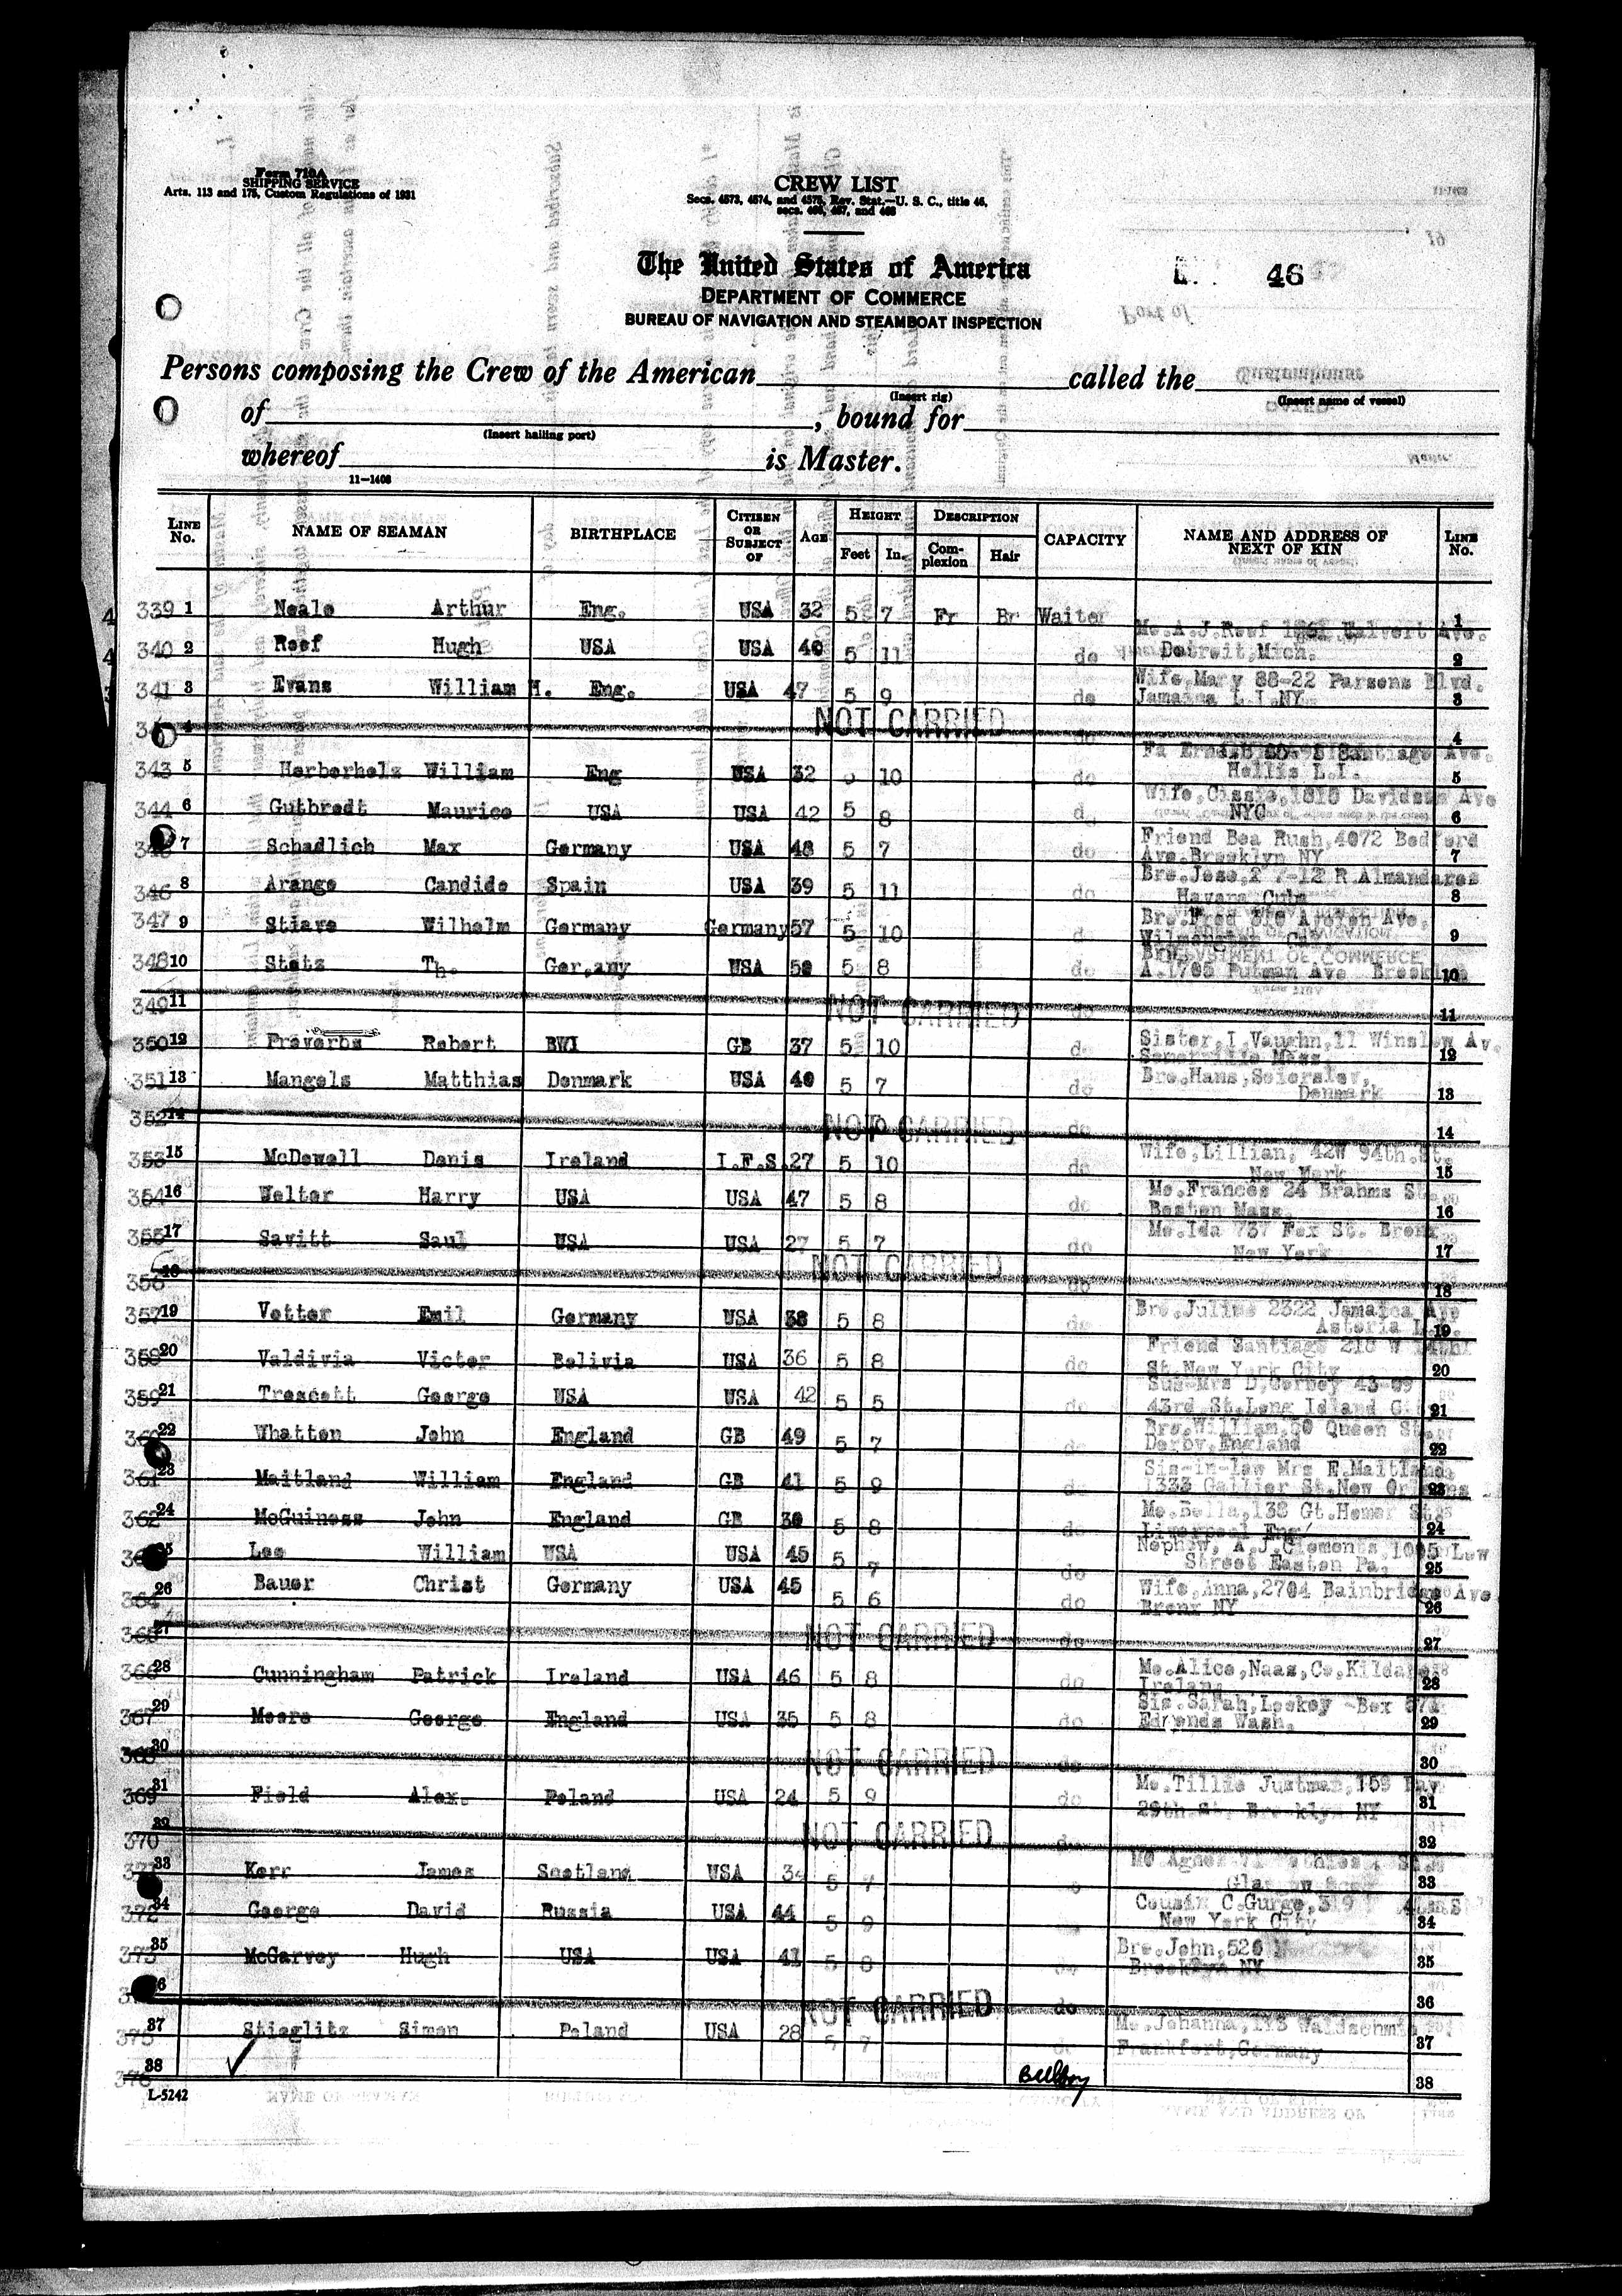 Form 710A
SHIPPING SERVICE
Arts. 113 and 175, Custom Regulations of 1931
CREW LIST
Secs. 4573, 4574, and 4575, Rev. Stat.—U. S. C., title 46,
secs. 466, 467, and 468
The United States of America
DEPARTMENT OF COMMERCE
BUREAU OF NAVIGATION AND STEAMBOAT INSPECTION
46
Persons composing the Crew of the American called the
(Insert rig) (Insert name of vessel)
of , bound for
(Insert hailing port)
whereof is Master.
11—1408
LINE No. NAME OF SEAMAN BIRTHPLACE CITIZEN OR SUBJECT OF AGE HEIGHT Feet In. DESCRIPTION Complexion Hair CAPACITY NAME AND ADDRESS OF NEXT OF KIN LINE No.
339 1 Neale Arthur Eng. USA 32 5 7 Fr Br Waiter 1
340 2 Reef Hugh USA USA 40 5 11 do Mo.A.J.Reef Calvert Ave. Detroit,Mich. 2
341 3 Evans William H. Eng. USA 47 5 9 do Wife,Mary 88-22 Parsons Blvd. Jamaica L.I.NY 3
4 NOT CARRIED do 4
343 5 Herberholz William Eng USA 32 10 do Santiago Ave. Hollis L.I. 5
344 6 Gutbrodt Maurice USA USA 42 5 8 Wife,Cissie,1818 Davidson Ave NYC 6
7 Schadlich Max Germany USA 48 5 7 do Friend Bea Rush,4072 Bedford Ave.Brooklyn NY 7
346 8 Arango Candido Spain USA 39 5 11 do Bro.Jose,2 7-12 R.Almandares Havana Cuba 8
347 9 Stiave Wilhelm Germany Germany 57 5 10 Bro.Fred Ave. 9
348 10 Stetz Th. Ger,any USA 50 5 8 do A.1705 Putman Ave Brooklyn 10
349 11 NOT CARRIED do 11
350 12 Proverbs Robert BWI GB 37 5 10 do Sister,I.Vaughn,11 Winslow Av. Somerville Mass 12
351 13 Mangels Matthias Denmark USA 40 5 7 do Bro.Hans, Denmark 13
352 14 NOT CARRIED do 14
353 15 McDowell Denis Ireland I.F.S. 27 5 10 do Wife,Lillian, 42W 94th.St. New 15
354 16 Welter Harry USA USA 47 5 8 do Mo.Frances 24 Brahms St. Boston Mass. 16
355 17 Savitt Saul USA USA 27 5 7 do Mo.Ida 737 Fox St. Bronx New York 17
356 18 NOT CARRIED do 18
357 19 Vetter Emil Germany USA 38 5 8 do Bro.Julius 2322 Jamaica Ave Astoria 19
358 20 Valdivia Victor Bolivia USA 36 5 8 do Friend Santiago 218 W 14th St.New York City 20
359 21 Trescott George USA USA 42 5 5 do 43rd St.Long Island City 21
360 22 Whatton John England GB 49 5 7 do Bro.William,50 Queen St. Derby,England 22
361 23 Maitland William England GB 41 5 9 do Sis-in-law Mrs E.Maitland 1333 Gallier St.New Orleans 23
362 24 McGuiness John England GB 30 5 8 do Mo.Bella,138 Gt.Homer St. Liverpool Eng 24
25 Lee William USA USA 45 5 7 do Nephew, A.J.Clements,1005 Lew Street Easton Pa, 25
364 26 Bauer Christ Germany USA 45 5 6 do Wife,Anna,2704 Bainbridge Ave Bronx NY 26
365 27 NOT CARRIED do 27
366 28 Cunningham Patrick Ireland USA 46 5 8 do Mo.Alice,Naas,Co.Kildare Ireland 28
367 29 Moore George England USA 35 5 8 do Sis.Sarah,Leckey -Box Edmonds Wash. 29
368 30 NOT CARRIED do 30
369 31 Field Alex. Poland USA 24 5 9 do Mo.Tillie Justman,159 Bay 29th St. Brooklyn NY 31
370 32 NOT CARRIED do 32
371 33 Kerr James Scotland USA 5 7 Mo Agnes 33
372 34 George David Russia USA 44 5 9 Cousin C.Gurge,319 New York City 34
373 35 McGarvey Hugh USA USA 41 5 8 Bro.John,526 Brooklyn NY 35
36 NOT CARRIED do 36
375 37 Stieglitz Simon Poland USA 28 5 7 Mo.Johanna, Frankfort,Germany 37
376 38 Bellboy 38
L-5242